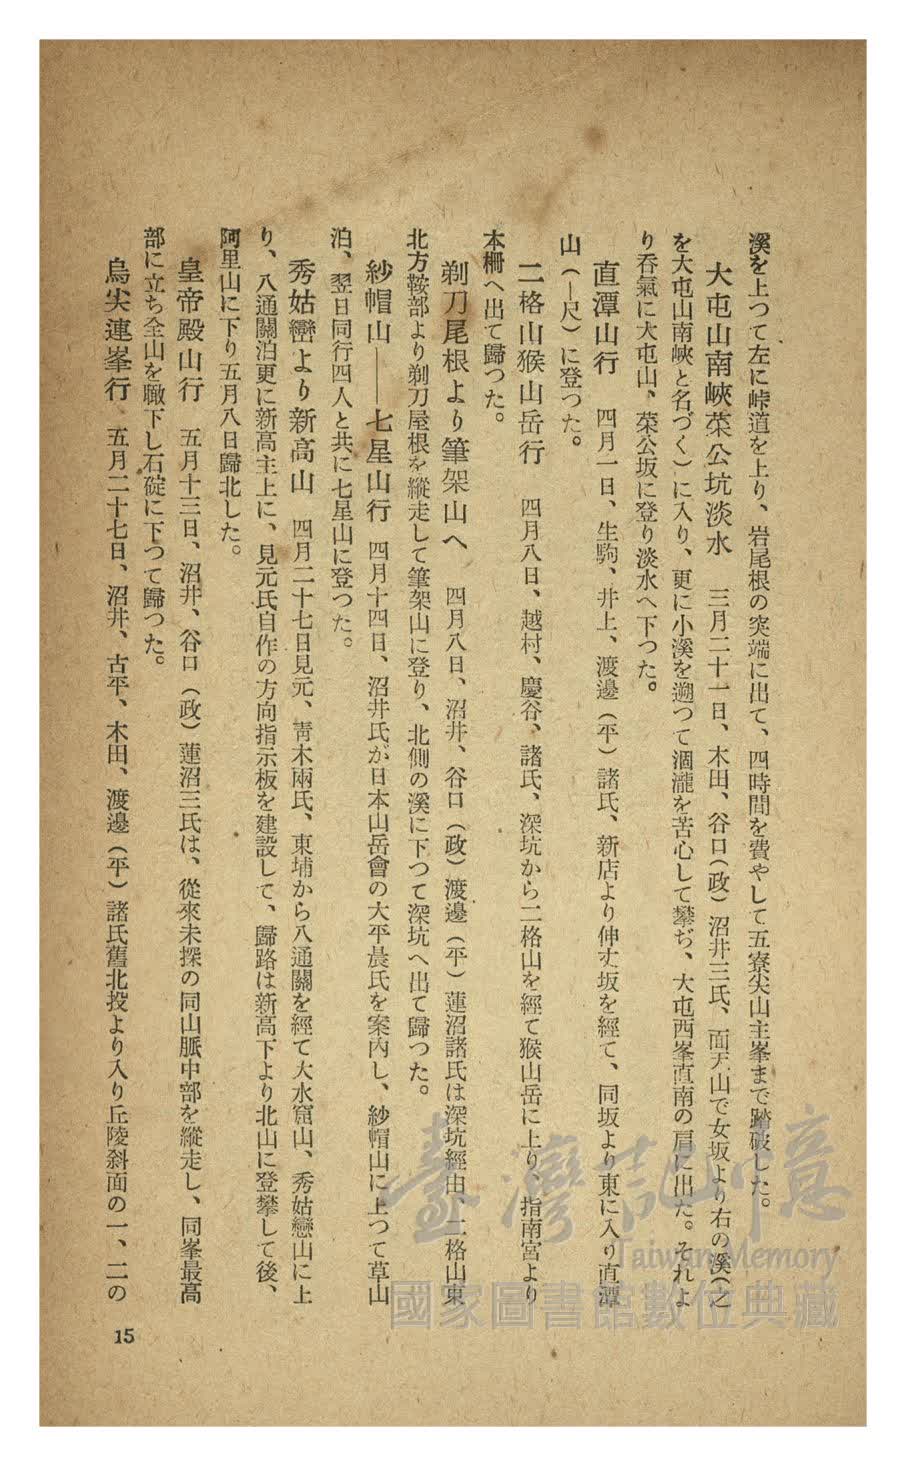 溪を上つて左に峠道を上り、岩尾根の突端に出て、四時間を費やして五寮尖山主峯まで踏破した。
大屯山南峽菜公坑淡水　三月二十一日、木田、谷口(政)沼井三氏、面天山で女坂より右の溪(之
を大屯山南峽と名づく)に入り、更に小溪を遡つて涸瀧を苦心して攀ぢ、大屯西峯直南の肩に出た。それよ
り呑氣に大屯山、菜公坂に登り淡水へ下つた。
直潭山行　四月一日、生駒、井上、渡邊(平)諸氏、新店より伸丈坂を經て、同坂より東に入り直潭
山(—尺)に登つた。
二格山猴山岳行　四月八日、越村、慶谷、諸氏、深坑から二格山を經て猴山岳に上り、指南宮より
木柵へ出て歸つた。
剃刀尾根より筆架山へ　四月八日、沼井、谷口(政)渡邊(平)蓮沼諸氏は深坑經由、二格山東
北方鞍部より剃刀屋根を縱走して筆架山に登り、北側の溪に下つて深坑へ出て歸つた。
紗帽山——七星山行　四月十四日、沼井氏が日本山岳會の大平晨氏を案內し、紗帽山に上つて草山
泊、翌日同行四人と共に七星山に登つた。
秀姑巒より新高山　四月二十七日見元、靑木兩氏、東埔から八通關を經て大水窟山、秀姑巒山に上
り、八通關泊更に新高主上に、見元氏自作の方向指示板を建設して、歸路は新高下より北山に登攀して後、
阿里山に下り五月八日歸北した。
皇帝殿山行　五月十三日、沼井、谷口(政)蓮沼三氏は、從來未探の同山脈中部を縱走し、同峯最高
部に立ち全山を瞰下し石碇に下つて歸つた。
烏尖連峯行　五月二十七日、沼井、古平、木田、渡邊(平)諸氏舊北投より入り丘陵斜面の一、二の
15
臺灣記憶
Taiwan Memory
國家圖書館數位典藏